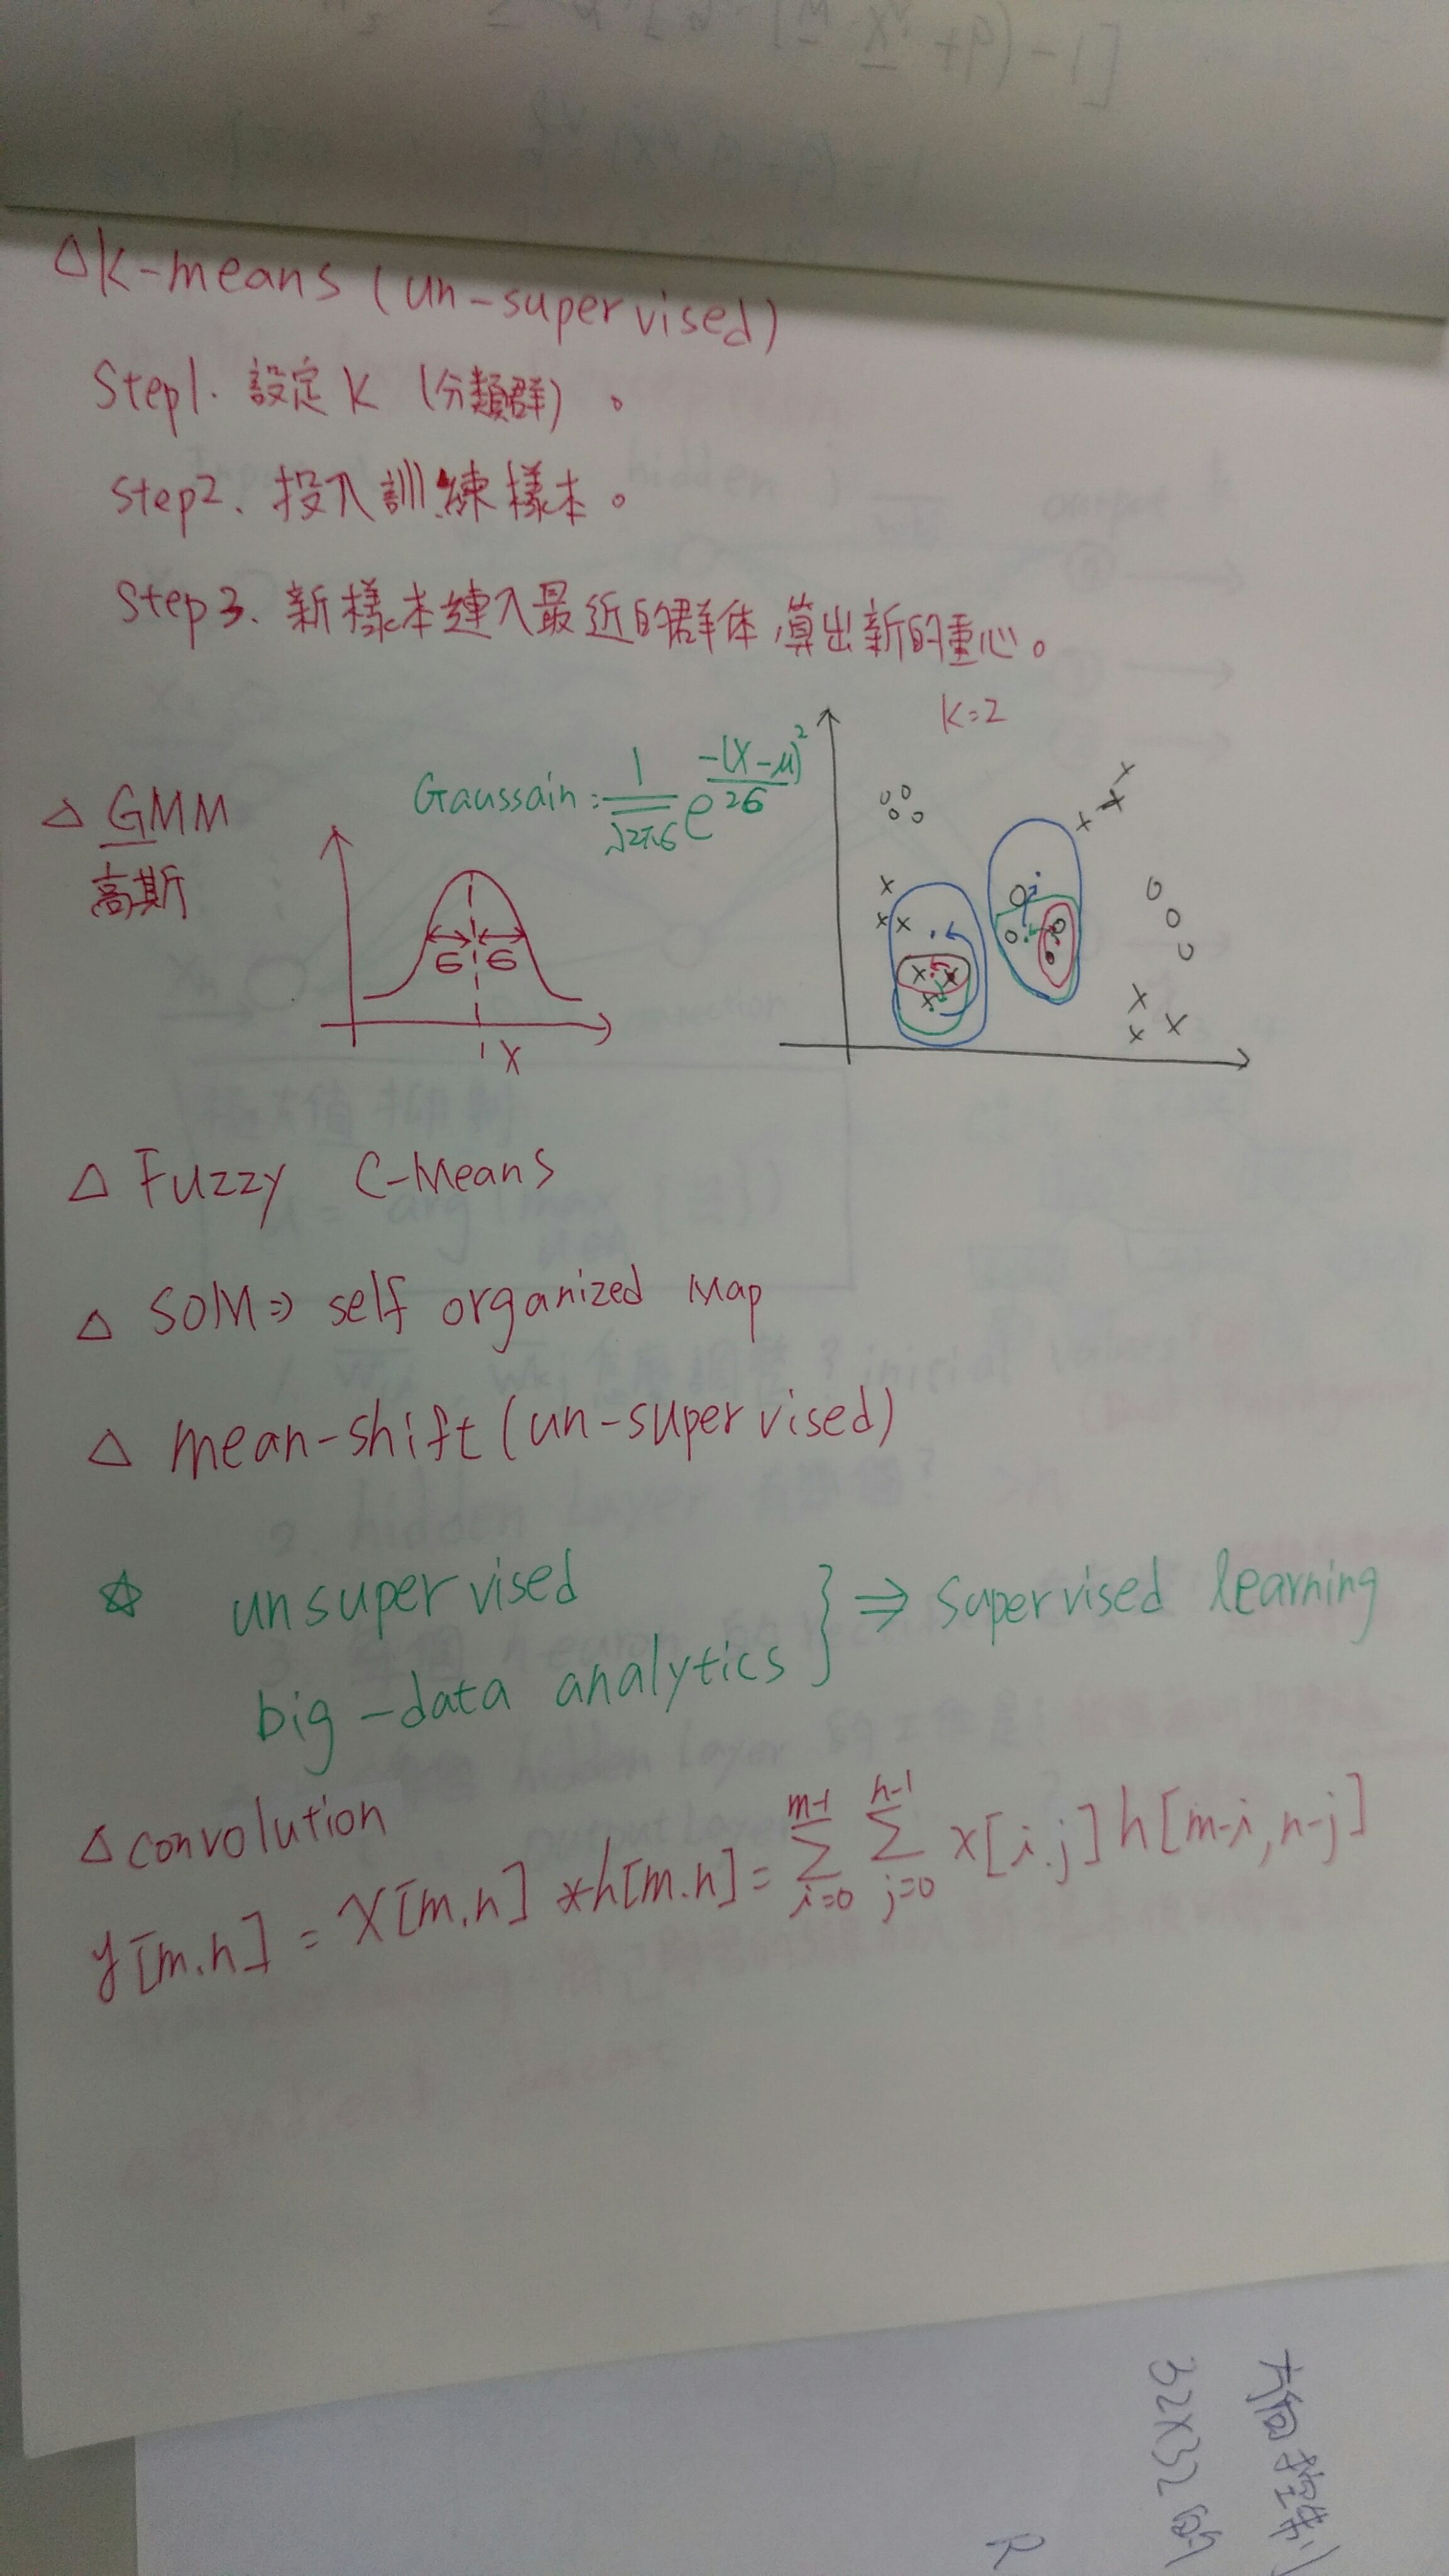 △k-means (un-supervised)
Step1. 設定 K (分類群)。
Step2. 投入訓練樣本。
Step3. 新樣本連入最近的群体,算出新的重心。
K=2
△ GMM
高斯
Gaussain: 1/√2π6 e -(X-μ)²/26
6 6
X
△ Fuzzy C-Means
△ SOM⇒ self organized Map
△ mean-shift (un-supervised)
☆ unsupervised
big-data analytics } ⇒ supervised learning
△ convolution
y[m.n] = X[m.n] *h[m.n] = Σ i=0 m-1 Σ j=0 n-1 x[i.j] h[m-i,n-j]
32X32
R